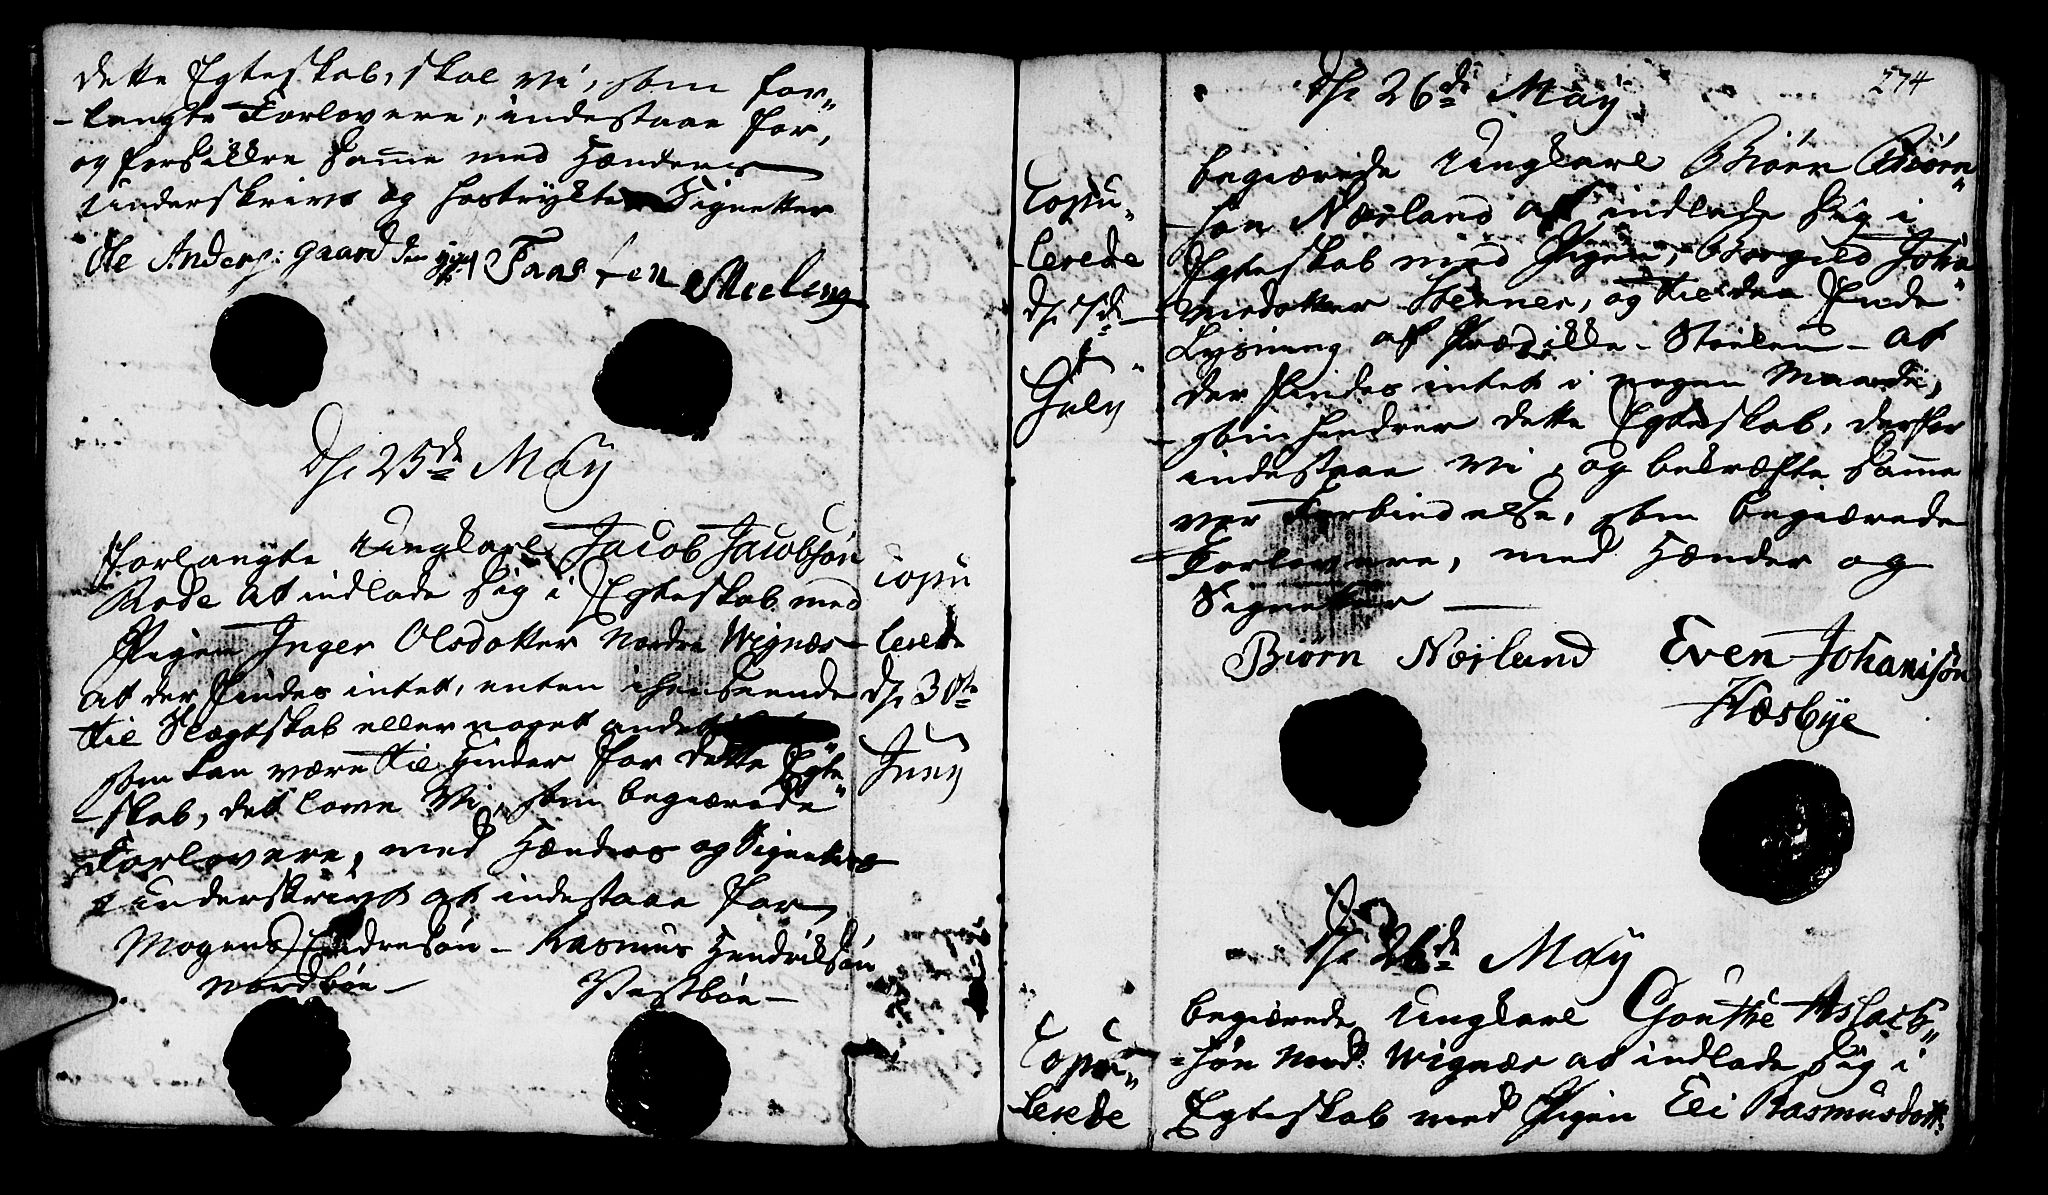 dette Egteskab, skal vi, som for„
-langte Forlovere, indestaae for,
og forsikkre samme med Hænders
Underskrivt og hostrykte Signetter
Ole Anders: gaard den yg: Faasten Meeling
d/: 25de May
forlangte Ungkarl Jacob Jacobsøn
Rode at indlade sig i Egteskab med
Pigen Inger Olsdotter Nordre Wignæs
at der findes intet, enten i henseende
til Slægtskab eller noget andet
som kan være til Hinder for dette Egte„
-skab, det love vi, som begiærede
Forlovere, med Hænders og Signeters
Underskrivt at indestaae for
Mogens Endresøn - Rasmus Hendriksøn
Nordbøe - Vestbøe -
Copu
lerede
d/: 30te
Juny
274
d/: 26de May
begiærede Ungkarl Biørn Biørn„
-søn Nærland at indlade sig i
Egteskab med Pigen, Borgild Joha„
-nnedotter Henner, og til den Ende
Lysning af Prædikke-Stoelen - at
der findes intet i nogen Maade,
som hindrer dette Egteskab, derfor
indestaae vi, og bekræfte samme
vor Forbindelse, som begiærede
Forlovere, med Hænder og
Signetter
Biørn Nærland Even Johanisøn
Hæsbye
Copu„
-lerede
d/: 7de
July
d/: 26de May
begiærede Ungkarl Gouthe Aslach„
-søn Nord: Wignæs at indlade sig i
Egteskab med Pigen Eli Rasmusdott:
Copu„
-lerede